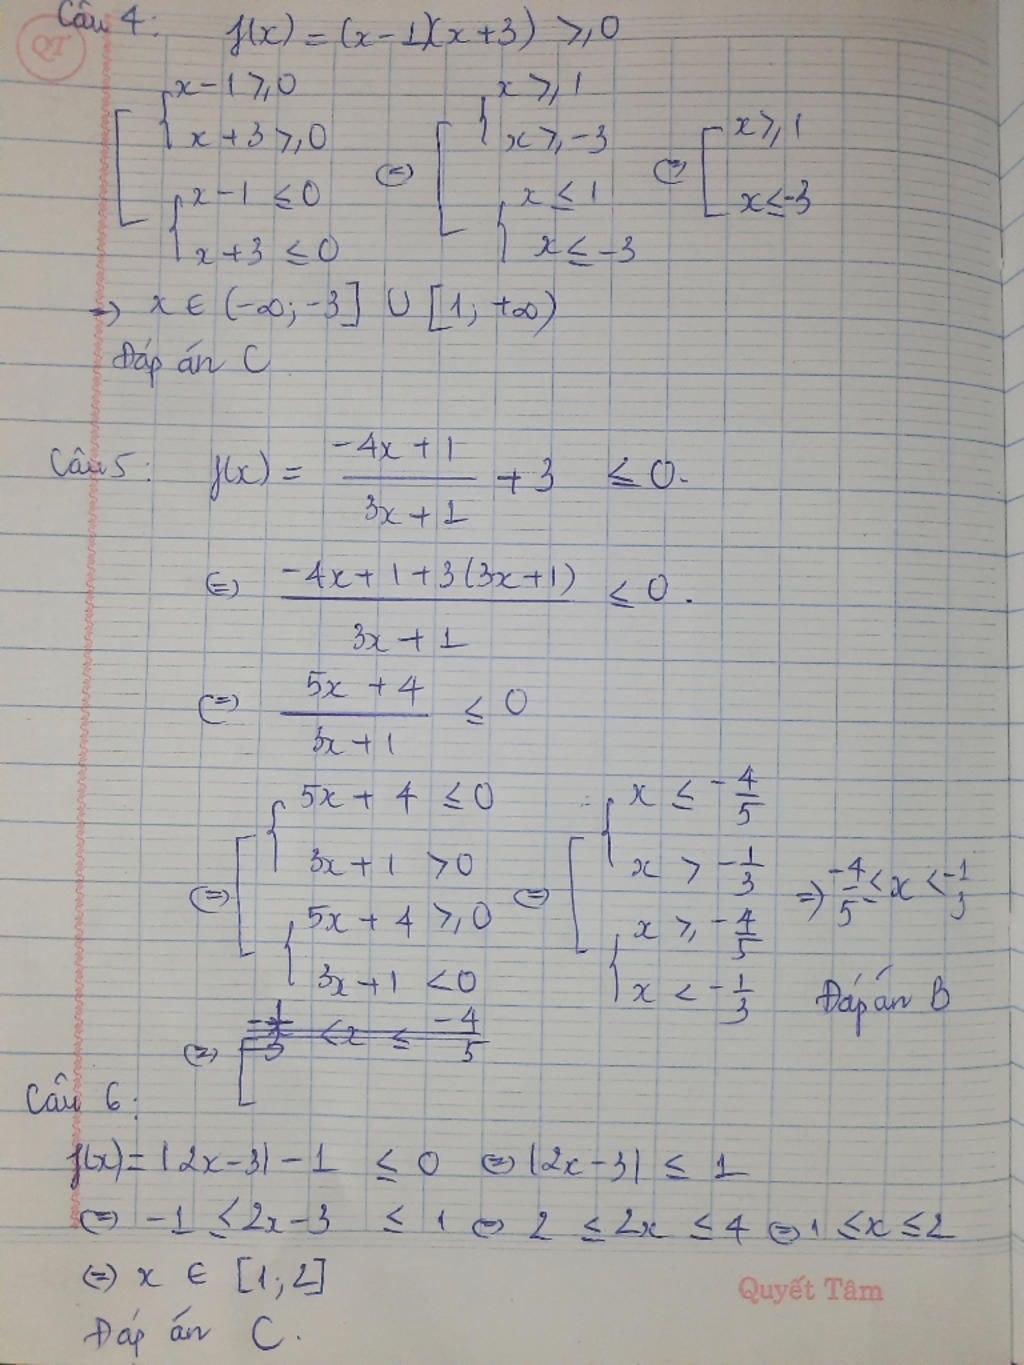 QT
Câu 4: f(x) = (x-1)(x+3) ≥ 0
[ { x-1 ≥ 0 ; x+3 ≥ 0 ; { x-1 ≤ 0 ; x+3 ≤ 0 ⇔ [ { x ≥ 1 ; x ≥ -3 ; { x ≤ 1 ; x ≤ -3 ⇔ [ x ≥ 1 ; x ≤ -3
→ x ∈ (-∞; -3] ∪ [1; +∞)
Đáp án C
Câu 5: f(x) = (-4x+1)/(3x+1) + 3 ≤ 0.
⇔ (-4x+1+3(3x+1))/(3x+1) ≤ 0.
⇔ (5x+4)/(3x+1) ≤ 0
⇔ [ { 5x+4 ≤ 0 ; 3x+1 > 0 ; { 5x+4 ≥ 0 ; 3x+1 < 0 ⇔ [ { x ≤ -4/5 ; x > -1/3 ; { x ≥ -4/5 ; x < -1/3 ⇒ -4/5 ≤ x < -1/3
Đáp án B
⇔ [ -1/3 < x ≤ -4/5
Câu 6:
f(x) = |2x-3| - 1 ≤ 0 ⇔ |2x-3| ≤ 1
⇔ -1 ≤ 2x-3 ≤ 1 ⇔ 2 ≤ 2x ≤ 4 ⇔ 1 ≤ x ≤ 2
⇔ x ∈ [1; 2]
Quyết Tâm
Đáp án C.